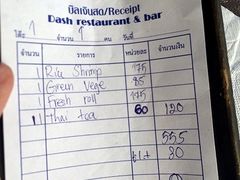 บิลเงินสด/Receipt
Dash restaurant & bar
โต๊ะ 1 จำนวน 1 คน วันที่
จำนวน รายการ หน่วยละ จำนวนเงิน
1 Shrimp 175
1 Green Vege 85
1 Fresh roll 175
1 Thai tea 60 120
555
30